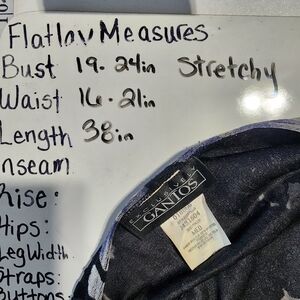 Flatlay Measures
Bust 19-24in Stretchy
Waist 16-21in
Length 38in
nseam
Rise:
Hips:
Leg Width
Straps:
Buttons:
EXCLUSIVELY
GANTOS
MED